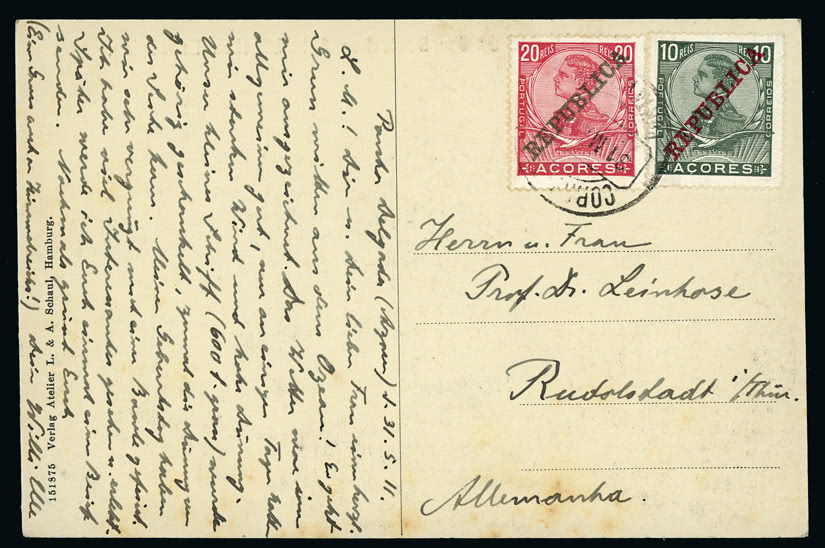 Ponta Delgada (Azoren) d. 31.5.11.
L. M.! Dir u. Deiner lieben Frau einen herzl.
Gruss mitten aus dem Ozean! Es geht
mir ausgezeichnet. Das Wetter war im
allgemeinen gut, nur an einigen Tagen hatten
wir starken Wind und hohe Dünung.
Unser kleines Schiff (600 t. gross) wurde
gehörig geschaukelt, zumal die Dünung von
der Seite kam. Meinen Geburtstag haben
wir sehr vergnügt an Bord gefeiert.
Ich habe viel Interessantes gesehen u. erlebt.
Später werde ich Euch einmal einen Brief
senden. Nochmals grüsst Euch
Dein Willi
(Einen Gruss auch an !)
151875 Verlag Atelier L. & A. Schaul, Hamburg.
20 REIS REIS 20
PORTUGAL CORREIOS
REPUBLICA
AÇORES
10 REIS 10
PORTUGAL CORREIOS
REPUBLICA
AÇORES
COR
Herrn u. Frau
Prof. Dr. Leinhose
Rudolstadt i/Thür.
Allemanha.